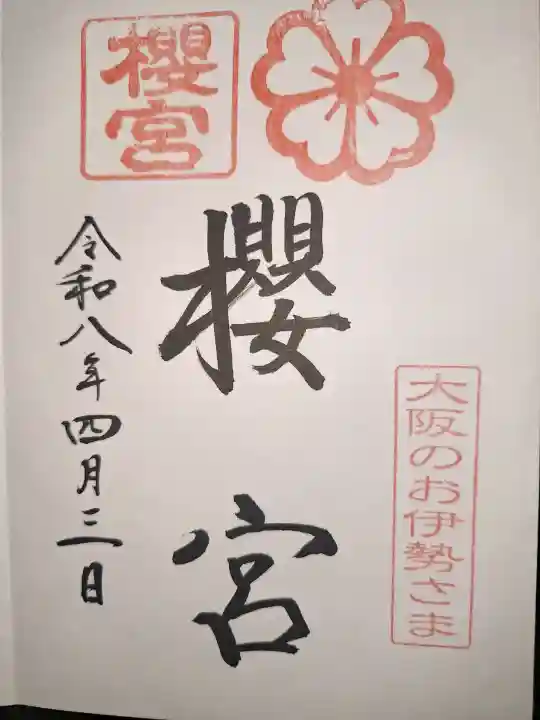 大阪のお伊勢さま
櫻宮
櫻宮
令和八年四月三日